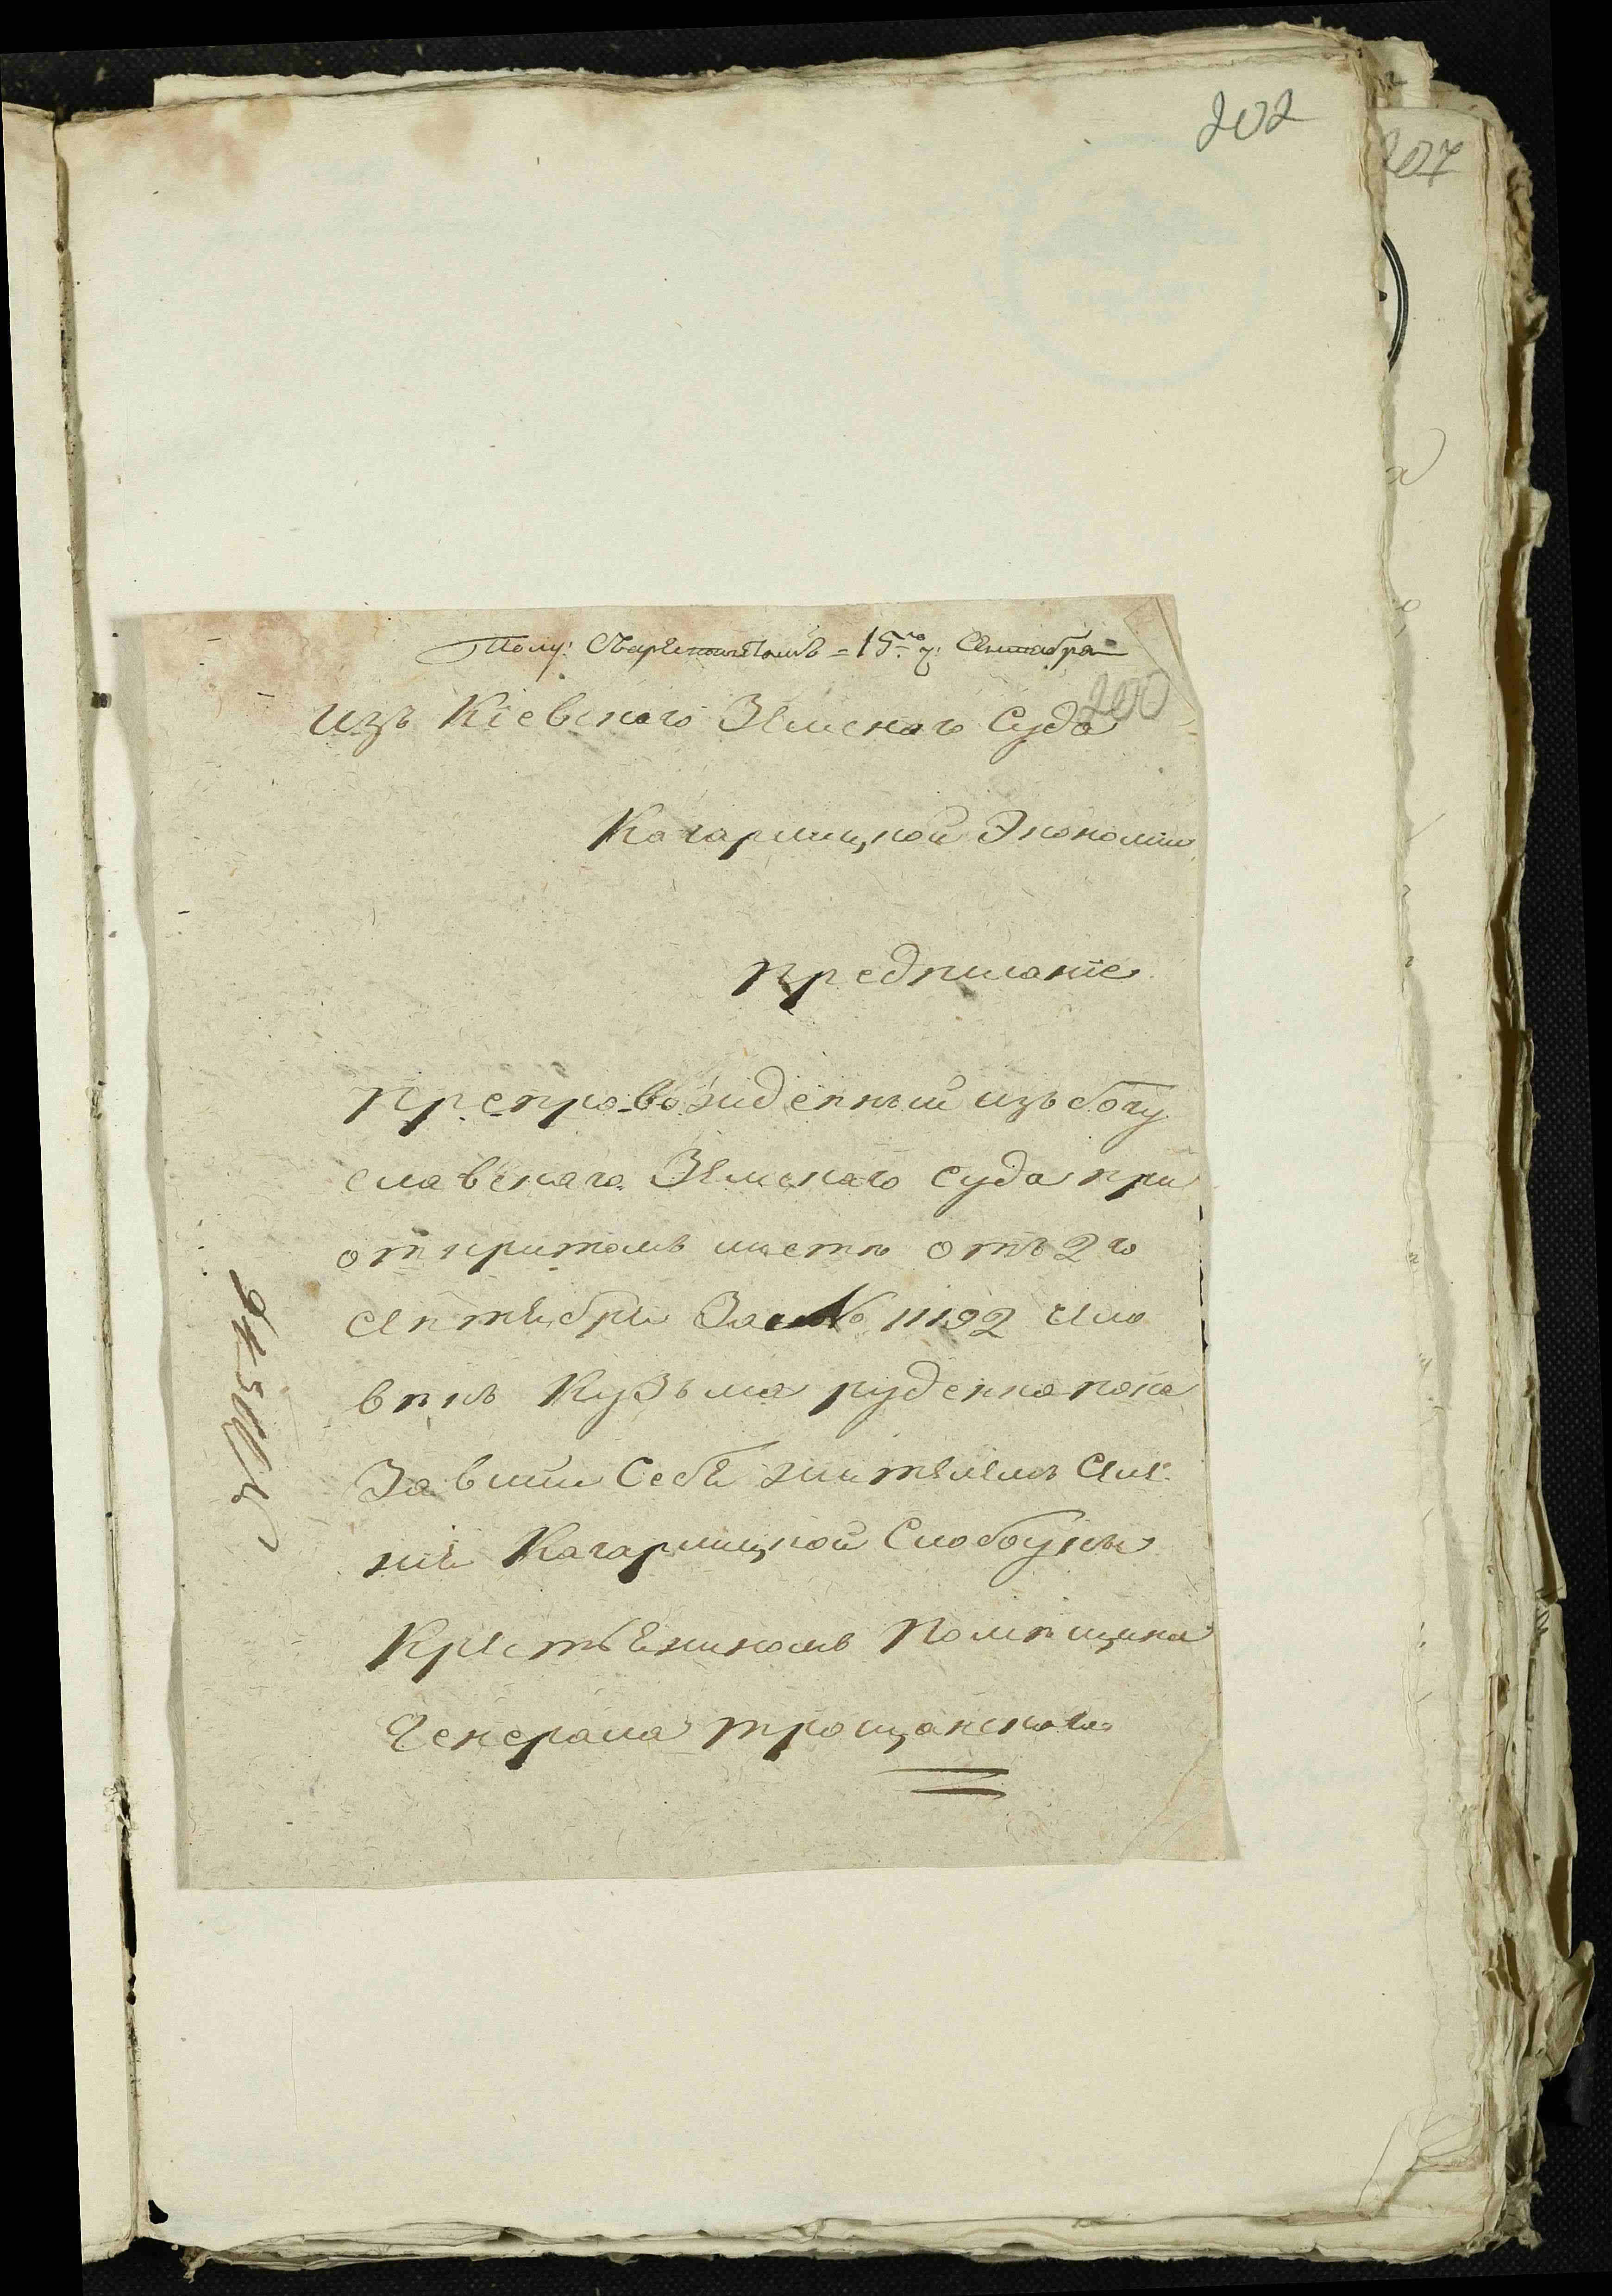 202
207
Полу: Съарестантомъ = 15го ч: Сентабра
200
изъ Кіевскаго Земскаго Суда
Кагарлицкой Экономіи
предписаніе
Препровожденный изъ богу
славскаго Земскаго суда при
открытомъ листѣ отъ 2го
сентебря За № 11192 чло
вѣкъ Кузьма руденко пока
Завшый Себя жителемъ Сле
нія Кагарлицкой Слободки
Крестьяниномъ Помѣщика
Генерала трощанскаго